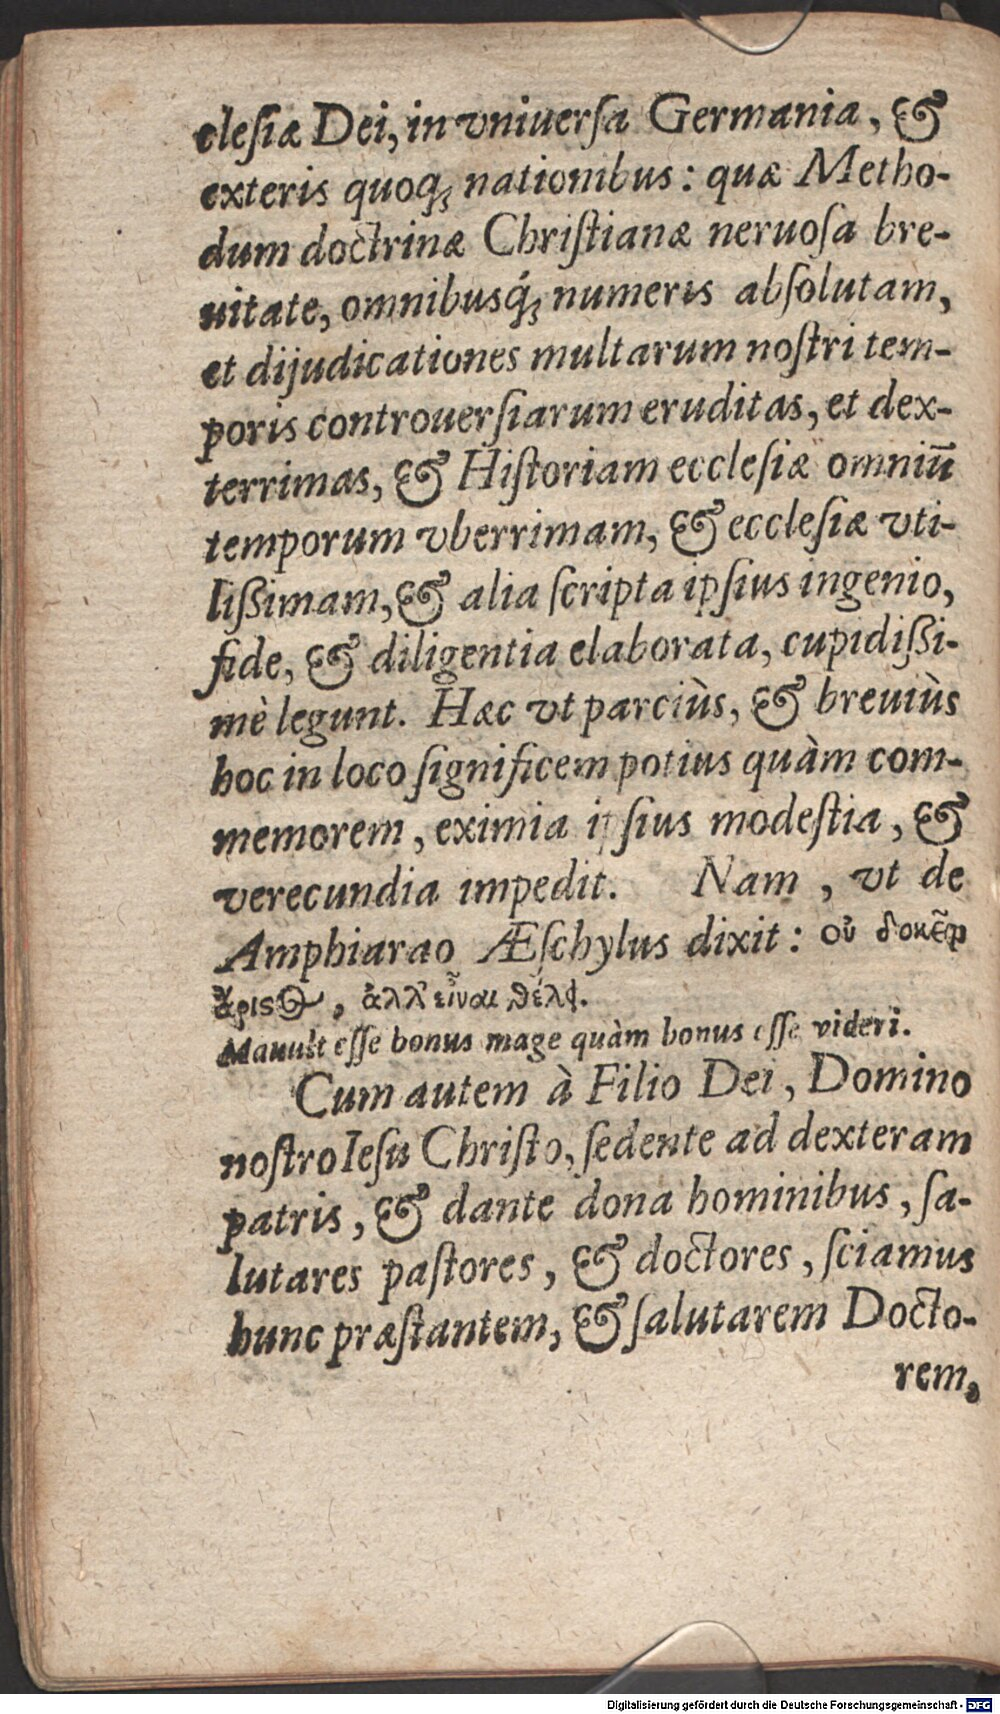 clesiæ Dei, in vniuersa Germania, &
exteris quoq; nationibus: quæ Metho-
dum doctrinæ Christianæ neruosa bre-
uitate, omnibusq́; numeris absolutam,
et dijudicationes multarum nostri tem-
poris controuersiarum eruditas, et dex-
terrimas, & Historiam ecclesiæ omniū
temporum vberrimam, & ecclesiæ vti-
lißimam, & alia scripta ipsius ingenio,
fide, & diligentia elaborata, cupidißi-
mè legunt. Hæc vt parciùs, & breuiùs
hoc in loco significem potius quàm com-
memorem, eximia ipsius modestia, &
verecundia impedit. Nam, vt de
Amphiarao Æschylus dixit: οὐ δοκεῖν
ἄριστος, ἀλλ' εἶναι θέλει.
Mauult esse bonus mage quàm bonus esse videri.
Cum autem à Filio Dei, Domino
nostro Iesu Christo, sedente ad dexteram
patris, & dante dona hominibus, sa-
lutares pastores, & doctores, sciamus
hunc præstantem, & salutarem Docto-
rem,
Digitalisierung gefördert durch die Deutsche Forschungsgemeinschaft - DFG